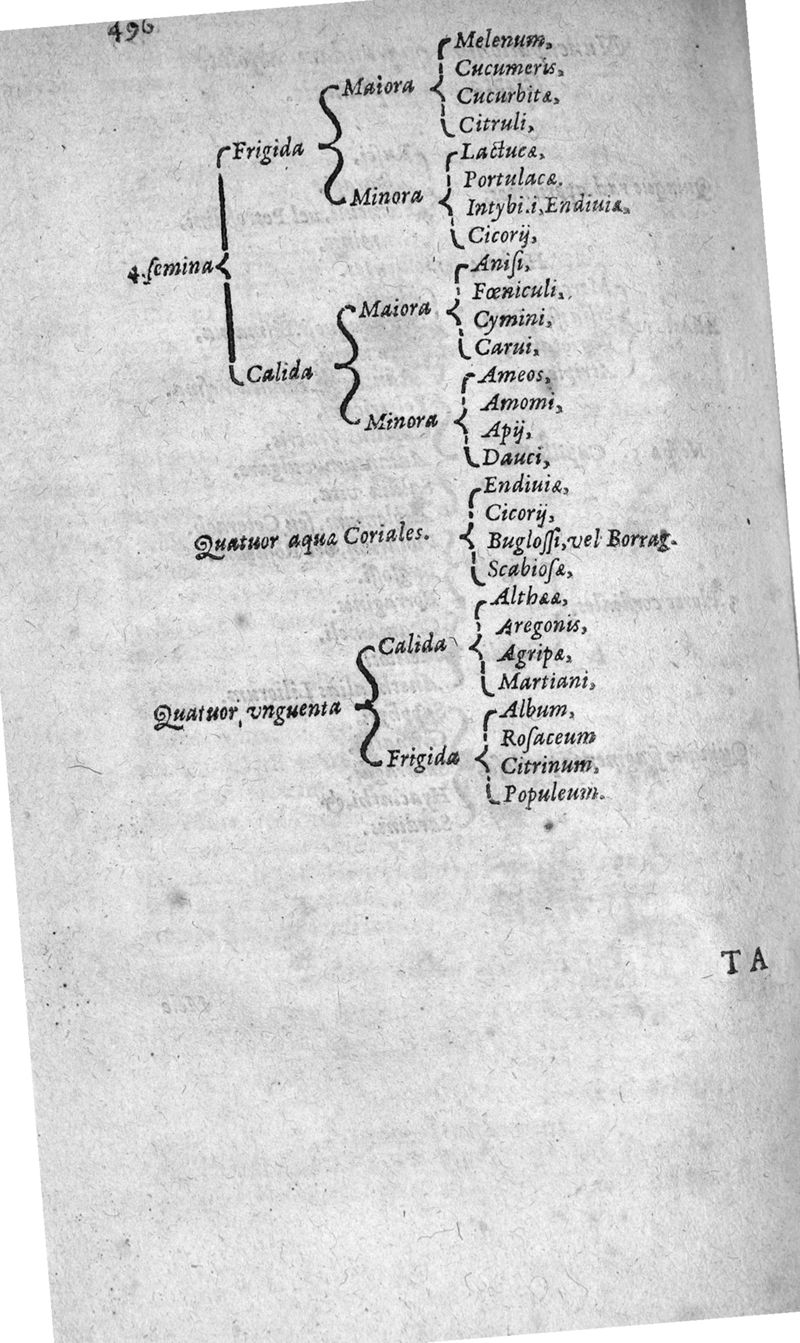 496
Melenum,
Maiora Cucumeris,
Cucurbitæ,
Citruli,
Frigida Lactucæ,
Portulacæ.
Minora Intybi.i, Endiuiæ,
Cicorij,
4. ſemina Aniſi,
Fœniculi,
Maiora Cymini,
Carui,
Calida Ameos,
Amomi,
Minora Apij,
Dauci,
Endiuiæ,
Cicorij,
Quatuor aqua Coriales. Bugloſſi, vel Borrag.
Scabioſæ,
Althææ,
Calida Aregonis,
Agripæ,
Martiani,
Quatuor vnguenta Album,
Roſaceum
Frigida Citrinum,
Populeum.
TA